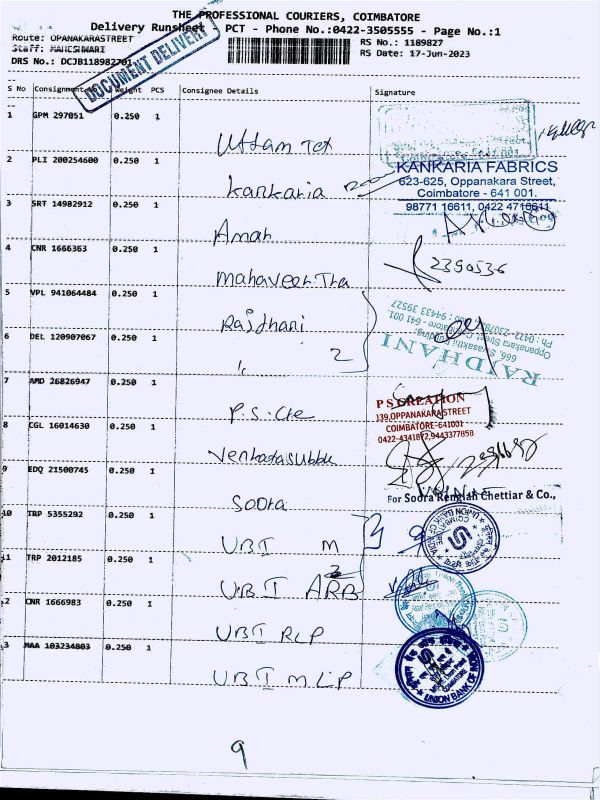 THE PROFESSIONAL COURIERS, COIMBATORE
Delivery Runsheet PCT - Phone No.:0422-3505555 - Page No.:1
Route: OPANAKARASTREET
RS No.: 1189827
Staff: MAHESHWARI
RS Date: 17-Jun-2023
DRS No.: DCJB118982701
DOCUMENT DELIVERY
S No Consignment No Weight PCS Consignee Details Signature
1 GPM 297051 0.250 1
Uttam Tex
2 PLI 200254600 0.250 1
Kankaria
KANKARIA FABRICS
623-625, Oppanakara Street,
Coimbatore - 641 001.
98771 16611, 0422 4716611
3 SRT 14982912 0.250 1
Aman
4 CNR 1666363 0.250 1
Mahaveer Tra
2390536
5 VPL 941064484 0.250 1
Rajdhani
RAJDHANI
Oppanakara Street
6 DEL 120907067 0.250 1
" 2
7 AMD 26826947 0.250 1
P.S. Cre
P S CREATION
139,OPPANAKARA STREET
COIMBATORE-641001
0422-4341872,9443377858
8 CGL 16014630 0.250 1
Venkatasubbu
9 EDQ 21500745 0.250 1
Soora
For Soora Rengiah Chettiar & Co.,
10 TRP 5355292 0.250 1
UBI M
UNION BANK OF INDIA
11 TRP 2012185 0.250 1
UBI ARB
2 CNR 1666983 0.250 1
UBI RLP
3 MAA 103234803 0.250 1
UBI MLP
UNION BANK OF
9